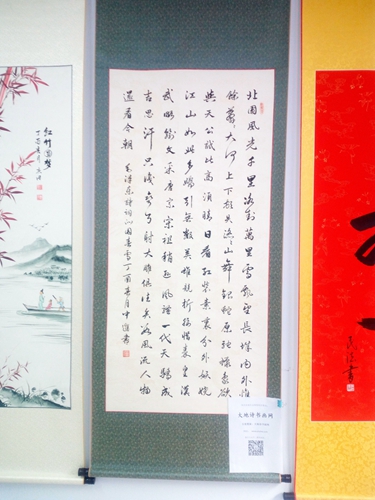 北国風光千里冰封萬里雪飘望長城内外惟
餘莽莽大河上下顿失滔滔山舞银蛇原驰蠟象欲
與天公試比高須晴日看红装素裹分外妖娆
江山如此多嬌引無數英雄競折腰惜秦皇漢
武略输文采唐宗宋祖稍逊風骚一代天骄成
吉思汗只識弯弓射大雕俱往矣數風流人物
還看今朝 毛泽东诗词沁园春雪丁酉春月中雄書
红竹
丁酉春月
書